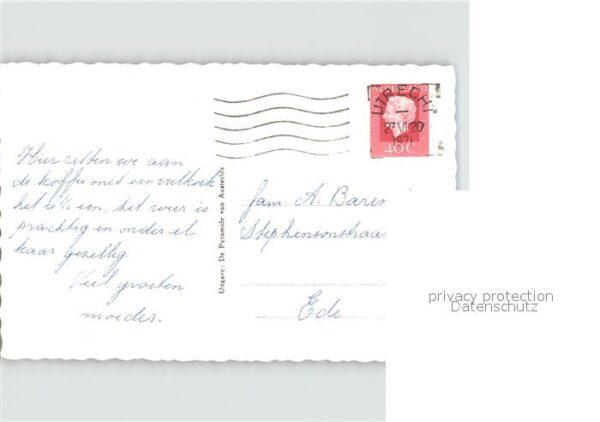 Hier zitten we aan
de koffie met een
het is ½ een, het weer is
prachtig en onder el
kaar gezellig.
Veel groeten
moeder.
Uitgave: De Pyramide van Austerlitz
NEDERLAND
40c
UTRECHT
23 VI 20
197
Fam. A. Baren
Stephensonstraa
Ede
privacy protection
Datenschutz